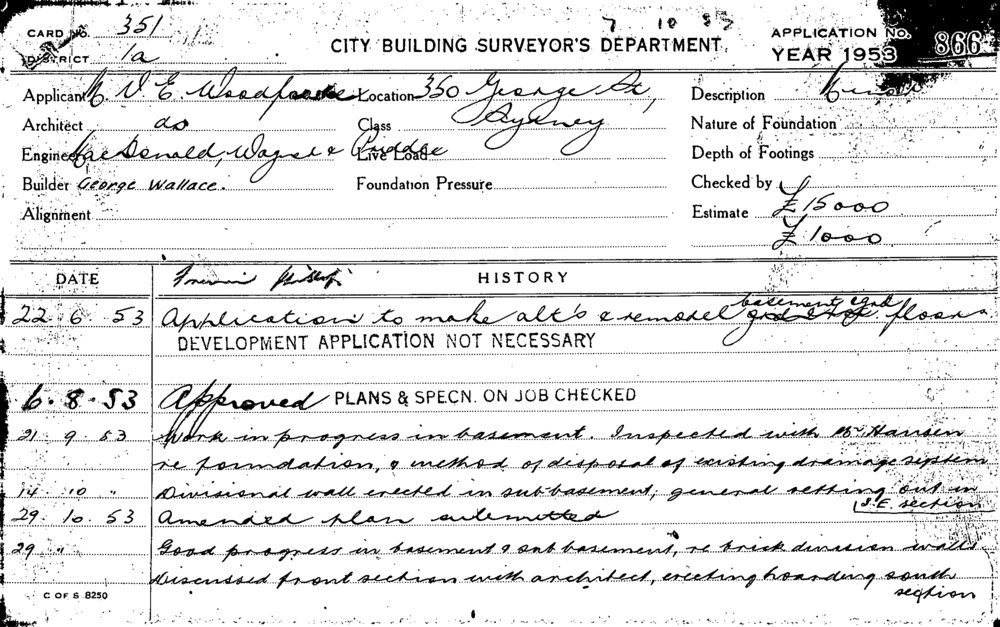 7 10 53
CARD No. 351
CITY BUILDING SURVEYOR'S DEPARTMENT
APPLICATION No. 866
DISTRICT 1a
YEAR 1953
Applicant V E Location 350 George St,
Description
Architect do Class Sydney
Nature of Foundation
Engineer MacDonald, Wagner & Priddle Live Load
Depth of Footings
Builder George Wallace. Foundation Pressure
Checked by
Alignment
Estimate £15000
£1000
DATE HISTORY
22 6 53 Application to make alt's & remodel basement & grd floors
DEVELOPMENT APPLICATION NOT NECESSARY
6. 8. 53 Approved PLANS & SPECN. ON JOB CHECKED
21. 9. 53 Work in progress in basement. Inspected with Mr Hansen
re foundation, & method of disposal of existing drainage system
14. 10 " Divisional wall erected in sub-basement, general setting out in
S.E. section
29. 10. 53 Amended plan submitted
29 " Good progress in basement & sub basement, re brick division walls
Discussed front section with architect, erecting hoarding south
section
C OF S 8250